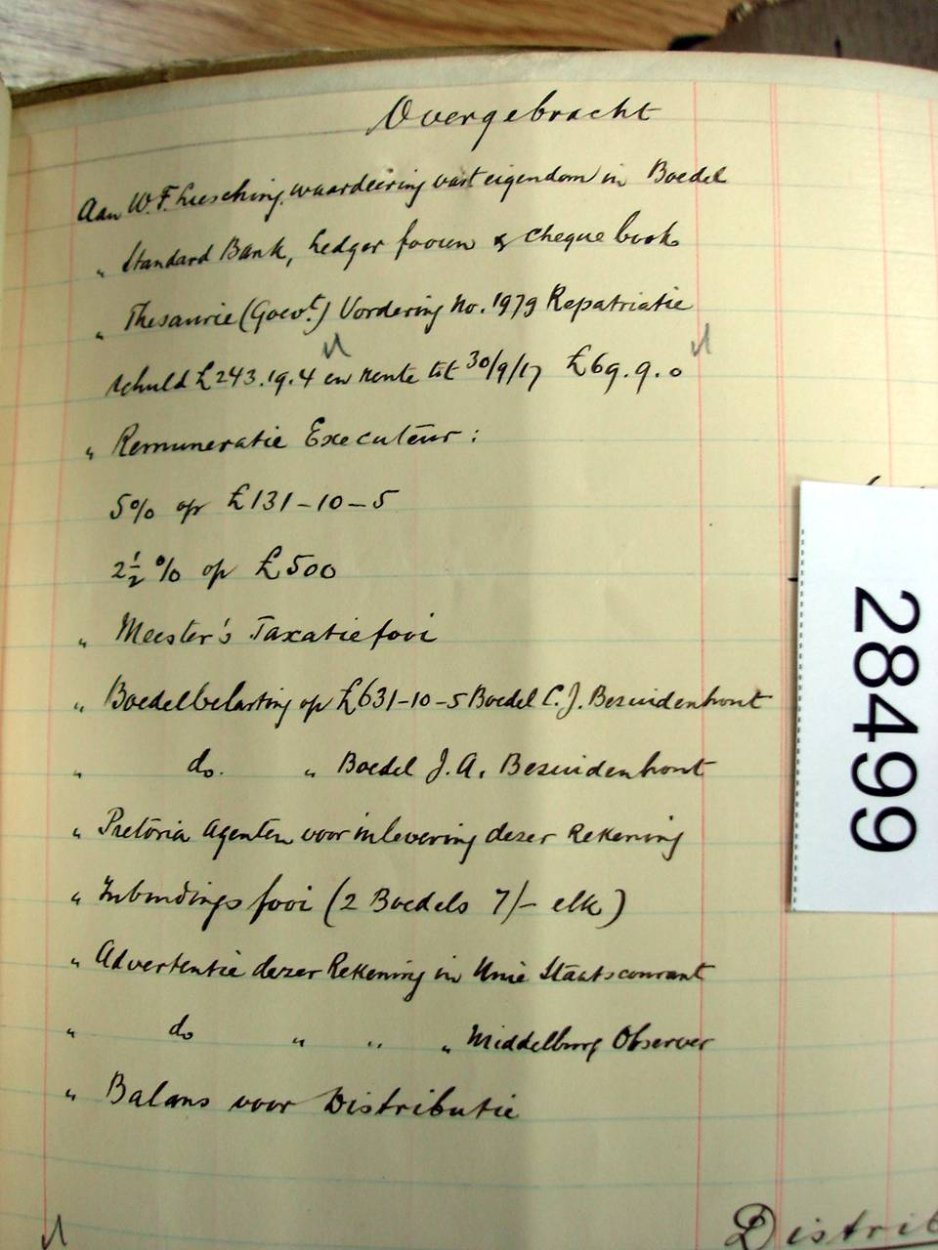 Overgebracht
Aan W.F. Liesching, waardeering vast eigendom in Boedel
" Standard Bank, Ledger fooien & cheque book
" Thesaurie (Govt.) Vordering No. 1979 Repatriatie
schuld £243.19.4 en rente tot 30/9/17 £69.9.0
" Remuneratie Executeur :
5% op £131-10-5
2½% op £500
" Meester's Taxatie fooi
" Boedelbelasting op £631-10-5 Boedel C.J. Bezuidenhout
" do. " Boedel J.A. Bezuidenhout
" Pretoria Agenten voor inlevering dezer Rekening
" Inbindings fooi (2 Boedels 7/- elk)
" Advertentie dezer Rekening in Unie Staatscourant
" do " " " Middelburg Observer
" Balans voor Distributie
Distrib
28499